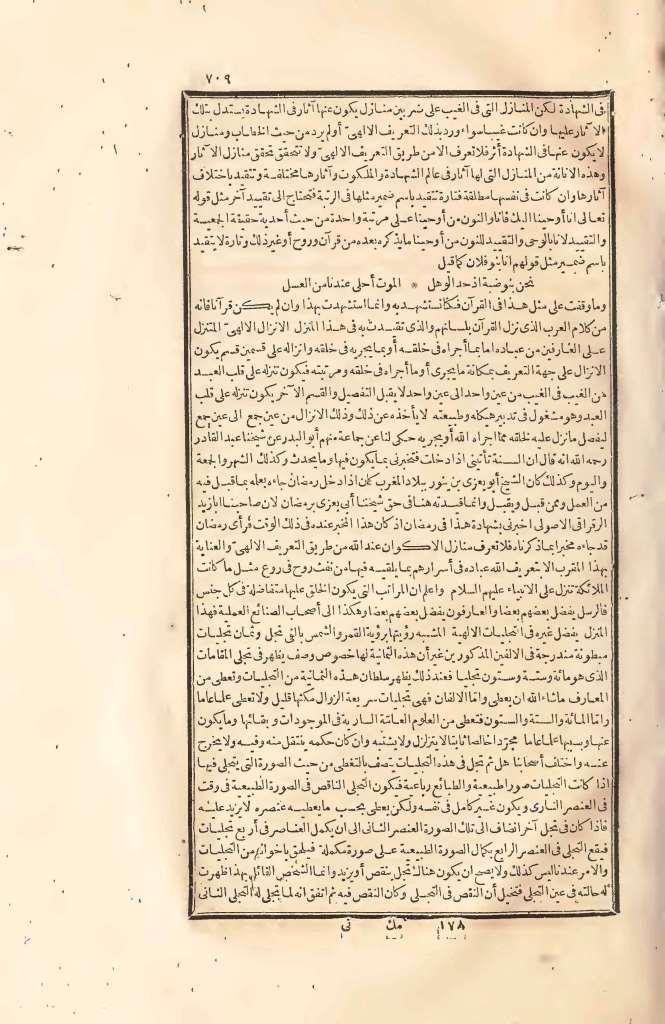 ٧٠٩
فى الشهادة لكن المنازل التى فى الغيب على ضربين منازل يكون عنها آثار فى الشهادة يستدل بتلك
الآثار عليها وان كانت غيبا سواء ورد بذلك التعريف الالهى أو لم يرد من حيث الخطاب ومنازل
لا يكون عنها فى الشهادة أثر فلا تعرف الا من طريق التعريف الالهى ولا تتحقق تحقق منازل الآثار
وهذه الاناية من المنازل التى لها آثار فى عالم الشهادة والملكوت وآثارها مختلفة وتتقيد باختلاف
آثارها وان كانت فى نفسها مطلقة فتارة تتقيد باسم ضمير مثلها فى الرتبة فتحتاج الى تقييد آخر مثل قوله
تعالى انا أوحينا اليك فانا والنون من أوحينا على مرتبة واحدة من حيث أحدية حقيقة الجمعية
والتقييد لانا بالوحى والتقييد للنون من أوحينا ما يذكره بعده من قرآن وروح أو غير ذلك وتارة لا يتقيد
باسم ضمير مثل قولهم انا بنو فلان كما قيل
نحن بنو ضبة اذ جد الوهل * الموت أحلى عندنا من العسل
وما وقفت على مثل هذا فى القرآن فكنا نستشهد به وانما استشهدت بهذا وان لم يكن قرآنا فانه
من كلام العرب الذى نزل القرآن بلسانهم والذى تقيدت به فى هذا المنزل الانزال الالهى المتنزل
على العارفين من عباده اما بما أجراه فى خلقه أو بما يجريه فى خلقه وانزاله على قسمين قسم يكون
الانزال على جهة التعريف بمكانة ما يجرى أو ما أجراه فى خلقه ومرتبته فيكون تنزله على قلب العبد
من الغيب فى الغيب من عين واحد الى عين واحد لا يقبل التفصيل والقسم الآخر يكون تنزله على قلب
العبد وهو مشغول فى تدبير هيكله وطبيعته لا يأخذه عن ذلك وذلك الانزال من عين جمع الى عين جمع
ليفصل ما نزل عليه لخلقه مما اجراه الله أو يجريه حكى لنا عن جماعة منهم أبو البدر عن شيخنا عبد القادر
رحمه الله انه قال ان السنة تأتينى اذا دخلت فتخبرنى بما يكون فيها وما يحدث وكذلك الشهر والجمعة
واليوم وكذلك كان الشيخ أبو يعزى بن نور ببلاد المغرب كان اذا دخل رمضان جاءه يعلمه بما قبل فيه
من العمل وممن قبل ويقبل وانما قيدته هنا فى حق شيخنا أبى يعزى برمضان لان صاحبنا ابا زيد
الرقراقى الاصولى اخبرنى بشهادة هذا فى رمضان اذ كان هذا المخبر عنده فى ذلك الوقت فرأى رمضان
قد جاءه مخبرا بما ذكرناه فلا تعرف منازل الاكوان عند الله من طريق التعريف الالهى والعناية
بهذا المقرب الا بتعريف الله عباده فى أسرارهم بما يلقيه فيها من نفث روح فى روع مثل ما كانت
الملائكة تنزل على الانبياء عليهم السلام واعلم ان المراتب التى يكون الخلق عليها متفاضلة فى كل جنس
فالرسل يفضل بعضهم بعضا والعارفون يفضل بعضهم بعضا وهكذا الى أصحاب الصنائع العملية فهذا
المنزل يفضل غيره فى التجليات الالهية المشبه رؤيتها برؤية القمر والشمس بالفى تجل وثمان تجليات
مبطونة مندرجة فى الالفين المذكورين غير أن هذه الثمانية لها خصوص وصف يظهر فى تجلى المقامات
الذى هو مائة وستة وستون تجليا فعند ذلك يظهر سلطان هذه الثمانية من التجليات وتعطى من
المعارف ما شاء الله ان يعطى واما الالفان فهى تجليات سريعة الزوال مكثها قليل ولا تعطى علما عاما
واما المائة والستة والستون فتعطى من العلوم العامة السارية فى الموجودات وبقائها وما يكون
عنها وبسببها علما عاما مجردا خالصا ثابتا لا يتزلزل ولا يشتبه وان كان حكمه ينتقل منه وفيه ولا يخرج
عنه واختلف أصحابنا هل ثم تجل فى هذه التجليات يتصف بالتغطى من حيث الصورة التى يتجلى فيها
اذا كانت التجليات صورا طبيعية والطبائع رباعية فيكون التجلى الناقص فى الصورة الطبيعية فى وقت
فى العنصر النارى ويكون غير كامل فى نفسه ولكن يعطى بحسب ما يعطيه عنصره لا يزيد عليه
فاذا كان فى تجل آخر انضاف الى تلك الصورة العنصر الثانى الى ان يكمل العناصر فى أربع تجليات
فيقع التجلى فى العنصر الرابع بكمال الصورة الطبيعية على صورة مكملة فيلحق باخوانهم من التجليات
والامر عندنا ليس كذلك ولا يصح ان يكون هناك تجل ينقص أو يزيد وانما الشخص القائل بهذا اظهرت
له حالته فى عين التجلى فتخيل أن النقص فى التجلى وكان النقص فيه ثم اتفق انه لما يتجلى له التجلى الثانى
١٧٨ مك نى